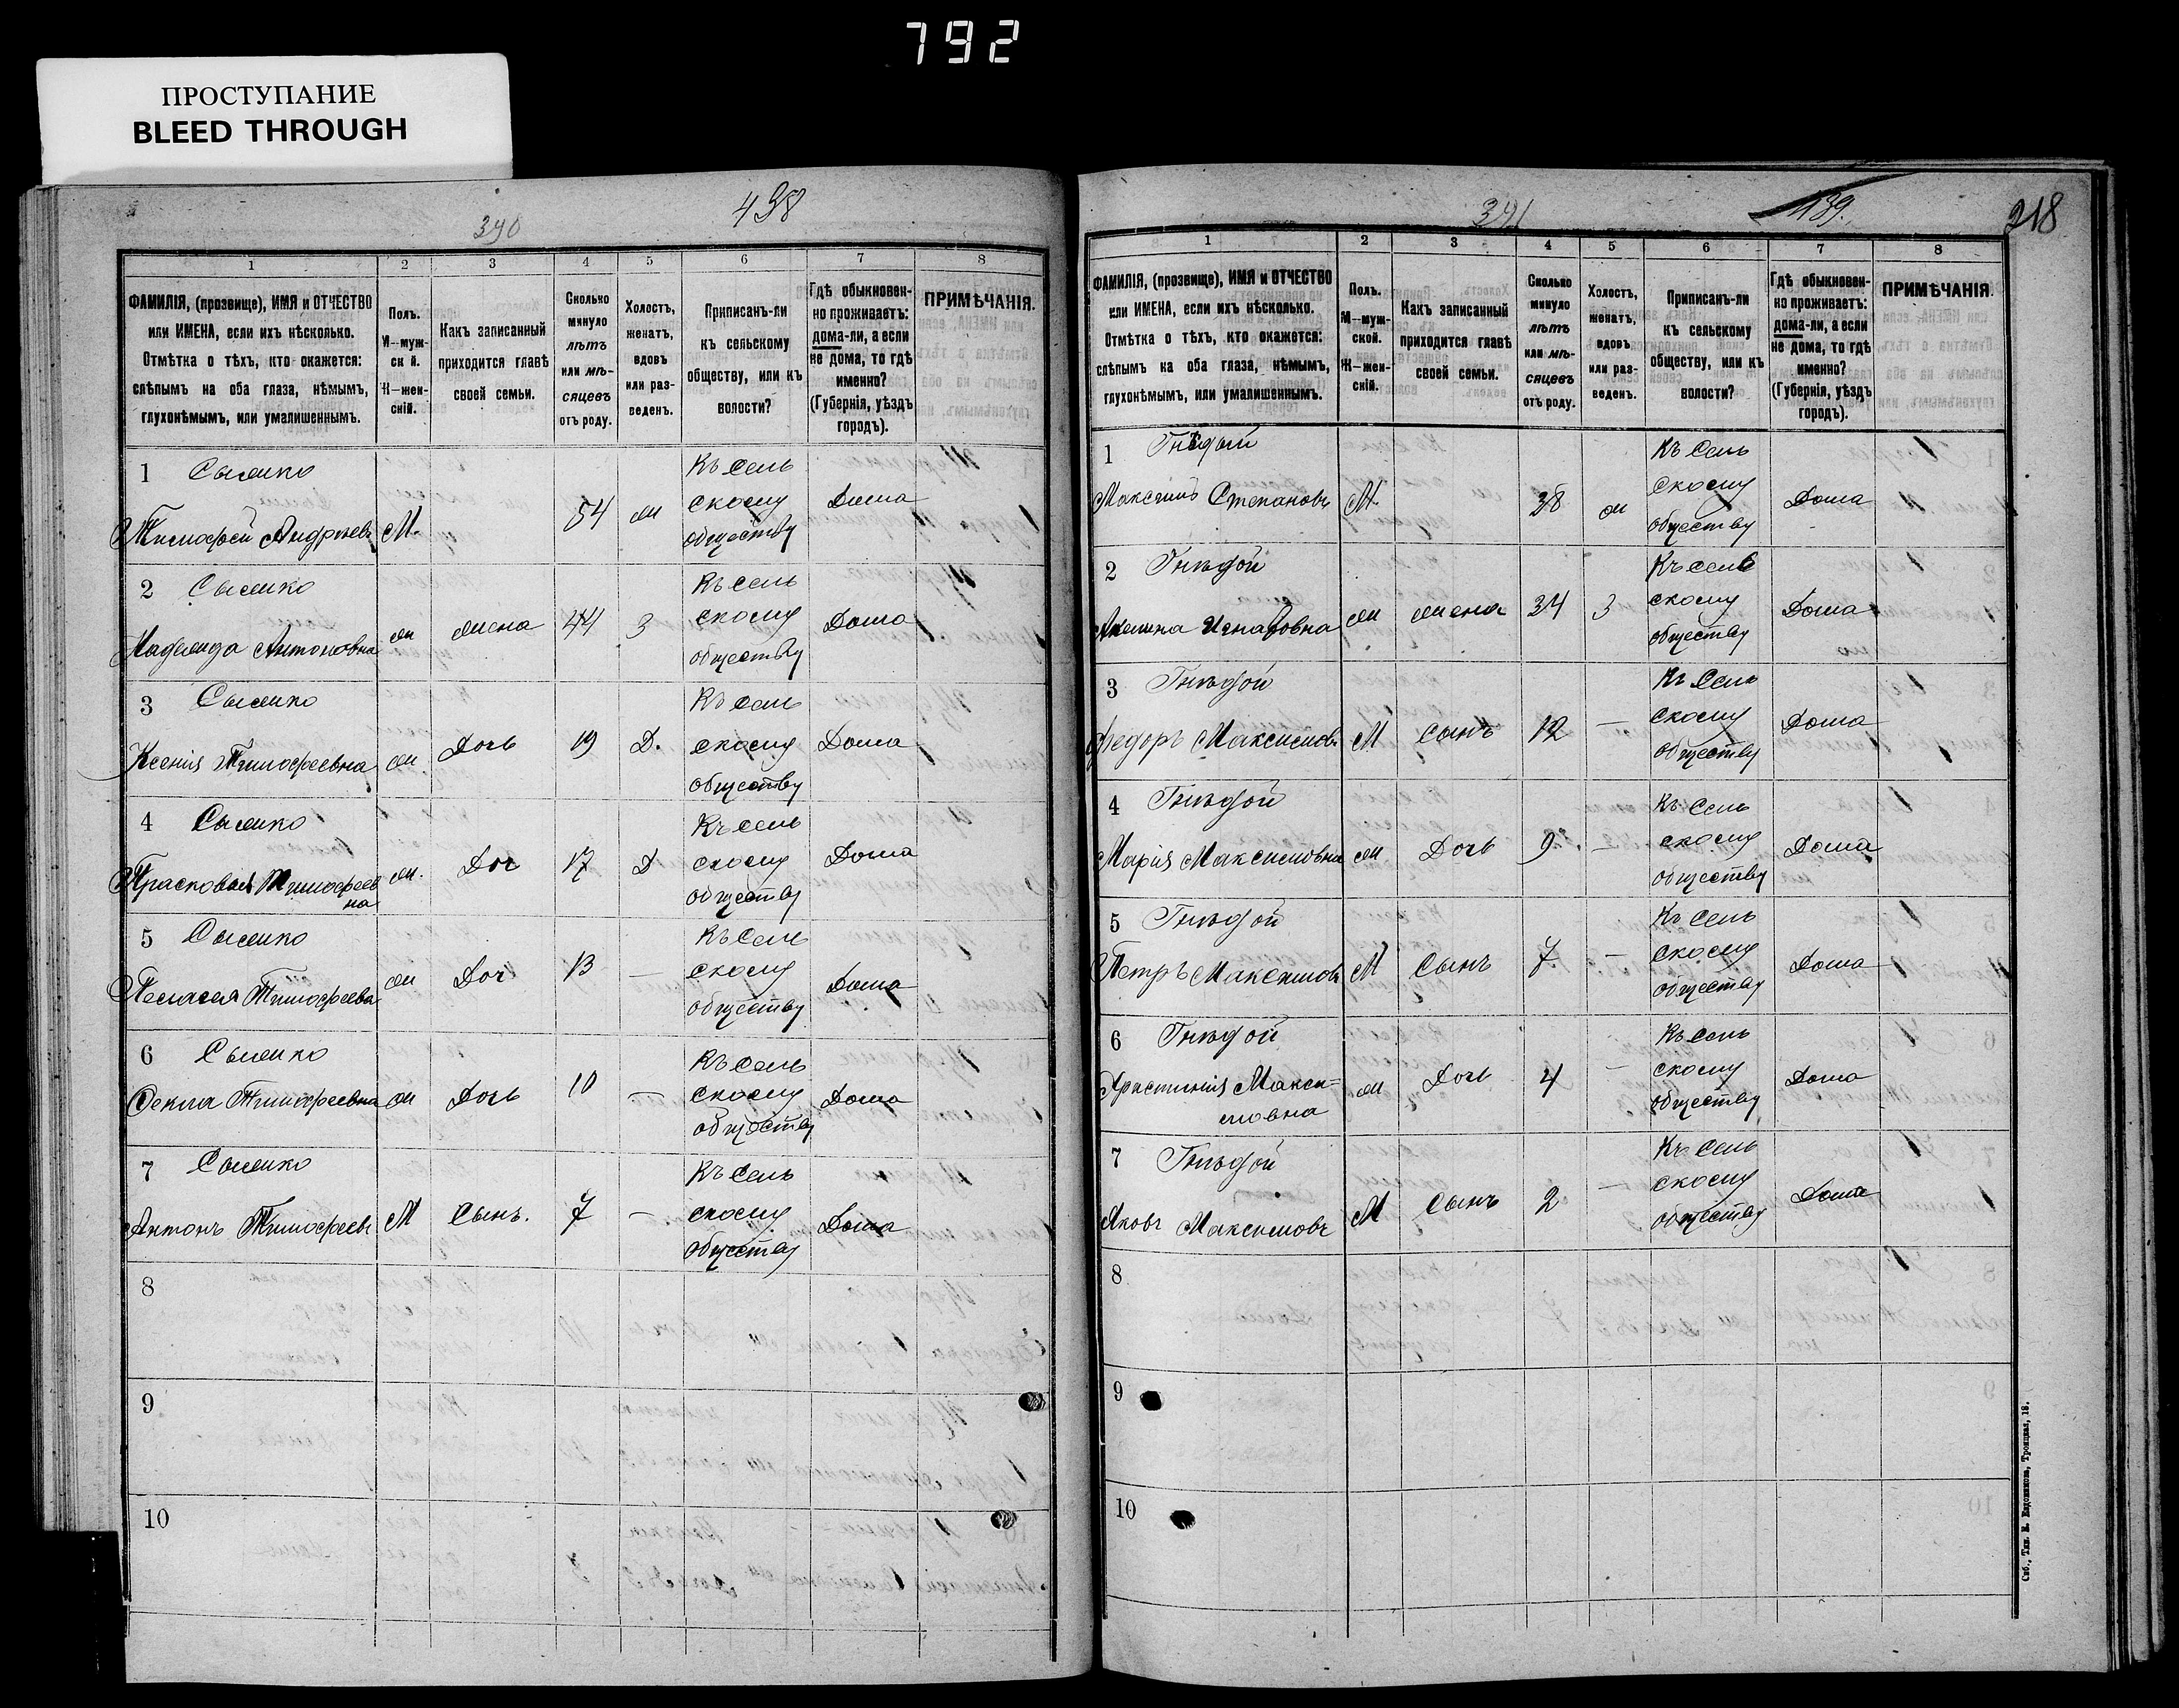 792
ПРОСТУПАНИЕ
BLEED THROUGH
438
390
1 2 3 4 5 6 7 8
ФАМИЛІЯ, (прозвище), ИМЯ и ОТЧЕСТВО
или ИМЕНА, если ихъ нѣсколько.
Отмѣтка о тѣхъ, кто окажется:
слѣпымъ на оба глаза, нѣмымъ,
глухонѣмымъ, или умалишеннымъ.
Полъ.
М—муж-
ск й.
Ж—жен-
скій.
Какъ записанный
приходится главѣ
своей семьи.
Сколько
минуло
лѣтъ
или мѣ-
сяцевъ
отъ роду.
Холостъ,
женатъ,
вдовъ
или раз-
веденъ.
Приписанъ-ли
къ сельскому
обществу, или къ
волости?
Гдѣ обыкновен-
но проживаетъ:
дома-ли, а если
не дома, то гдѣ
именно?
(Губернія, уѣздъ
городъ).
ПРИМѢЧАНІЯ.
1
Къ сель
Тимофей Андреевъ М. 54 ж скому Дома
обществу
2
Къ сель
Надежда Антоновна ж жена 44 З скому Дома
обществу
3
Къ сель
Ксенія Тимофеевна ж. Дочь 19 Д. скому Дома
обществу
4
Къ сель
Прасковья Тимофеев ж. Доч 17 Д скому Дома
на
обществу
5
Къ сель
Тимофеева ж Доч 13 — скому Дома
обществу
6
Къ сель
Фекла Тимофеевна ж Дочь 10 — скому Дома
обществу
7
Къ сель
Антонъ Тимофеевъ М Сынъ. 7 — скому Дома
обществу
8
9
10
391
439.
218
1 2 3 4 5 6 7 8
ФАМИЛІЯ, (прозвище), ИМЯ и ОТЧЕСТВО
или ИМЕНА, если ихъ нѣсколько.
Отмѣтка о тѣхъ, кто окажется:
слѣпымъ на оба глаза, нѣмымъ,
глухонѣмымъ, или умалишеннымъ.
Полъ.
М—муж-
ской.
Ж—жен-
скій.
Какъ записанный
приходится главѣ
своей семьи.
Сколько
минуло
лѣтъ
или мѣ-
сяцевъ
отъ роду.
Холостъ,
женатъ,
вдовъ
или раз-
веденъ.
Приписанъ-ли
къ сельскому
обществу, или къ
волости?
Гдѣ обыкновен-
но проживаетъ:
дома-ли, а если
не дома, то гдѣ
именно?
(Губернія, уѣздъ
городъ).
ПРИМѢЧАНІЯ.
1 Гнѣдый Къ сель
Максимъ Степановъ М. 38 ж скому Дома
обществу
2 Гнѣдой Къ сель
Акилина ж жена 34 З скому Дома
обществу
3 Гнѣдой Къ сель
Федоръ Максимовъ М Сынъ 12 — скому Дома
обществу
4 Гнѣдой Къ сель
Марія Максимовна ж Дочь 9 — скому Дома
обществу
5 Гнѣдой Къ сель
Петръ Максимовъ М Сынъ 7 — скому Дома
обществу
6 Гнѣдой Къ сель
Христинія Макси= ж Дочь 4 — скому Дома
мовна обществу
7 Гнѣдой Къ сель
Яковъ Максимовъ М Сынъ 2 — скому Дома
обществу
8
9
10
Спб., Тип. Н. Евдокимова, Троицкая, 18.